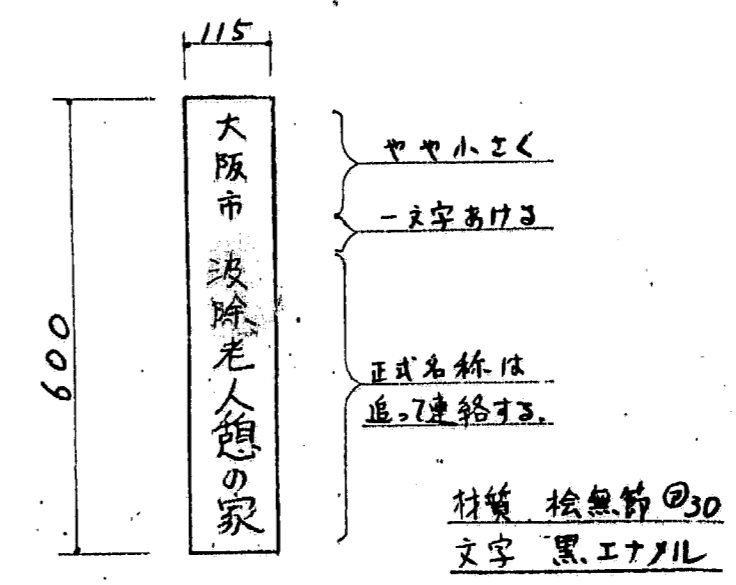 115
600
大阪市 波除老人憩の家
やや小さく
一文字あける
正式名称は
追って連絡する。
材質 桧無節 ㋐30
文字 黒エナメル